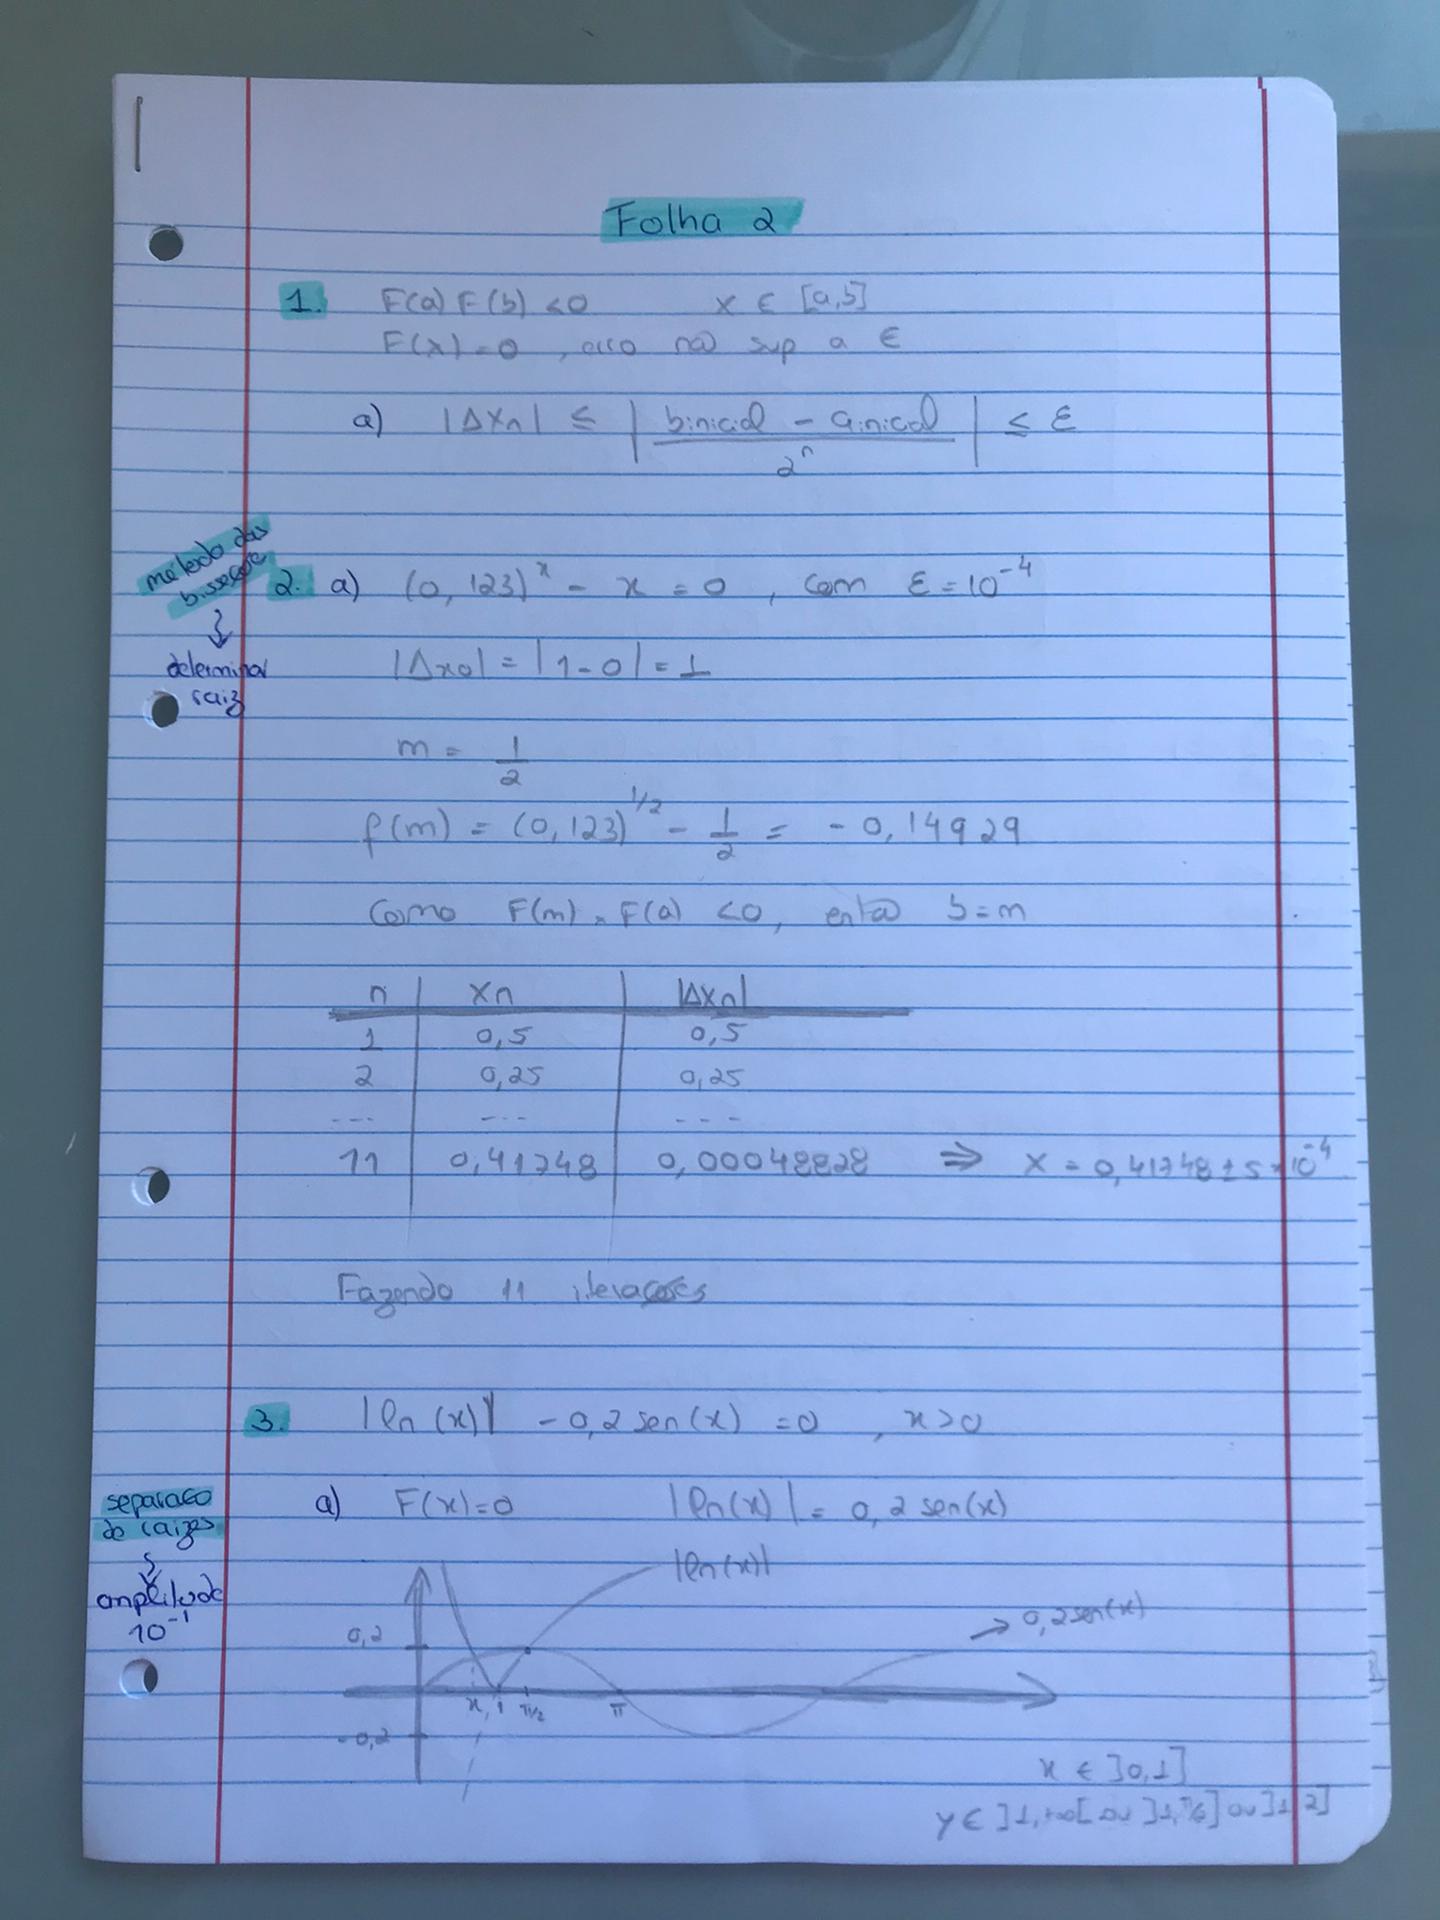 Folha 2
1. F(a) F(b) < 0 x ∈ [a,b]
F(x) = 0 , erro não sup a ε
a) |Δxn| ≤ | binicial - ainicial / 2^n | ≤ ε
método das bisseçoe
determinar raiz
2. a) (0,123)^x - x = 0 , com ε = 10^-4
|Δx0| = |1-0| = 1
m = 1/2
f(m) = (0,123)^1/2 - 1/2 = -0,14929
Como F(m) × F(a) < 0, então b = m
n xn |Δxn|
1 0,5 0,5
2 0,25 0,25
--- --- ---
11 0,41748 0,00048828 ⇒ x = 0,41748 ± 5 × 10^-4
Fazendo 11 iteracoes
3. |ln(x)| - 0,2 sen(x) = 0 , x > 0
separacao de raizes
amplitude 10^-1
a) F(x) = 0 |ln(x)| = 0,2 sen(x)
|ln(x)|
→ 0,2 sen(x)
0,2
x, 1 π/2 π
-0,2
x ∈ ]0,1]
y ∈ ]1,+∞[ ou ou ]1,2]